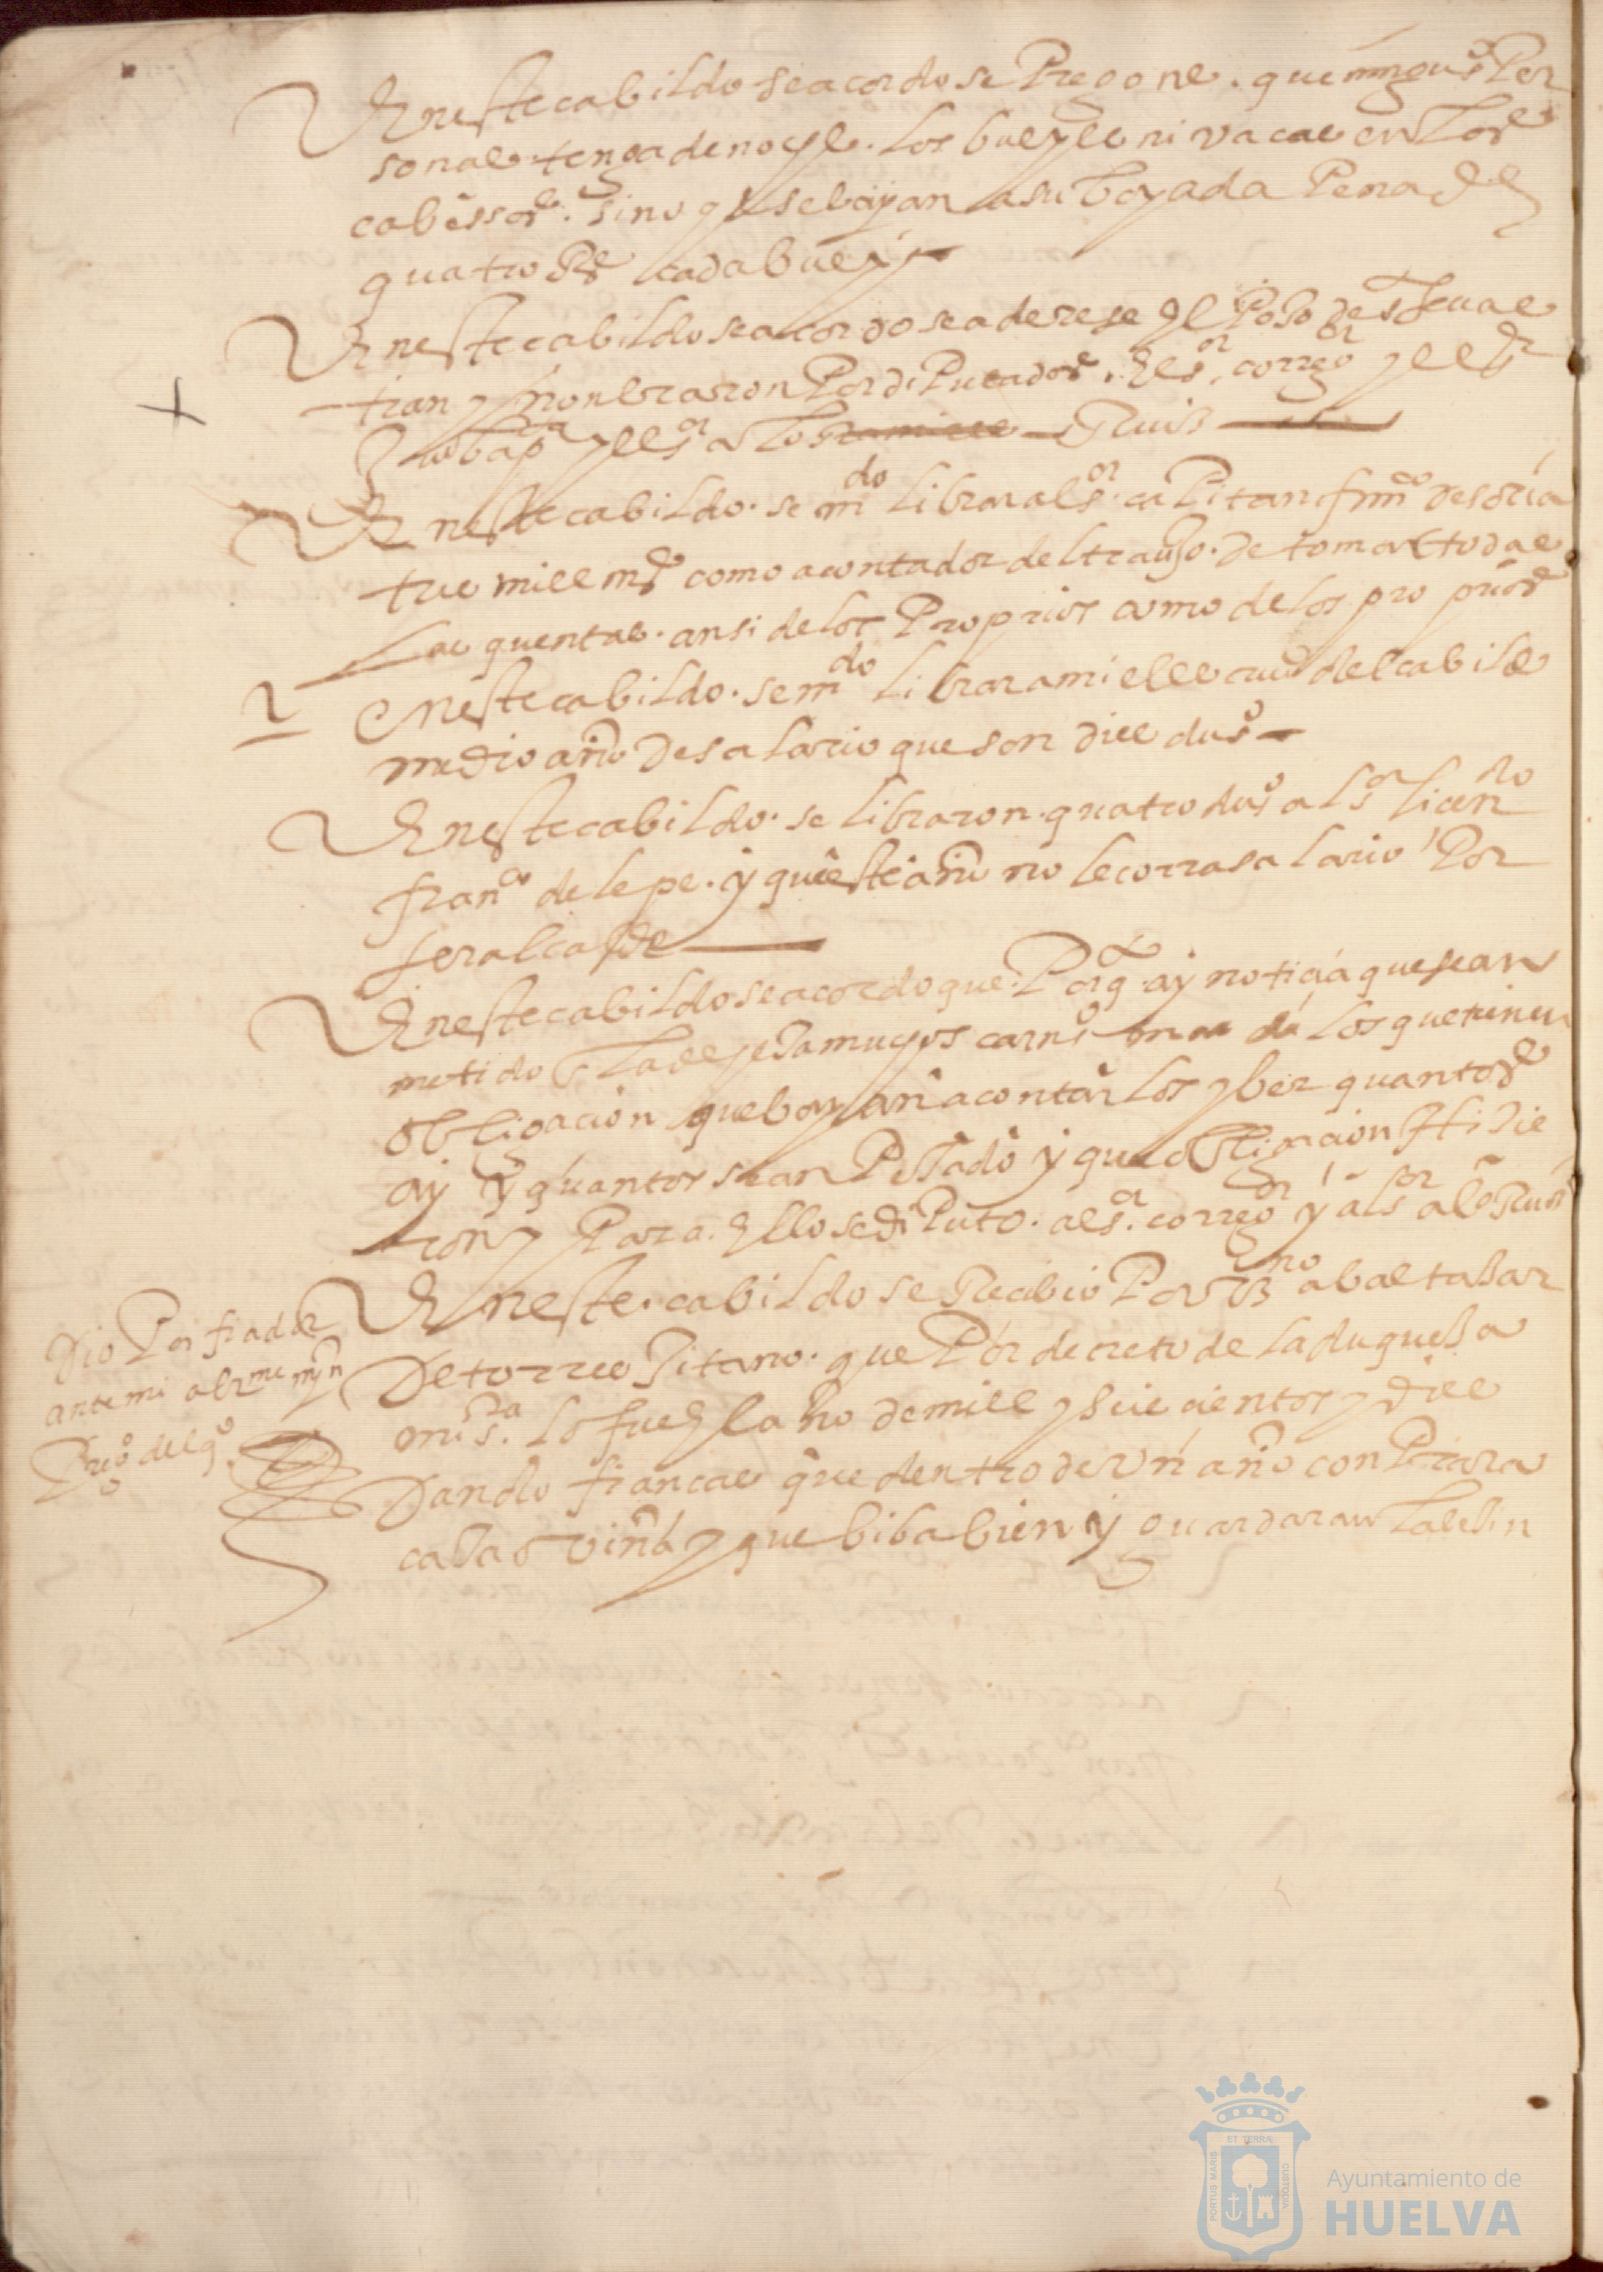 En este cabildo se acordo se Pregone. que ningus Per
sonas tenga de noche. los bueyes ni vacas en los
cabessos. sino q se bayan a su boyada Pena de
quatro Rs cada buey
En este cabildo se acordo se aderese el Poso de s seuas
tian y nonbraron Por diPutados. El sor. corregor y el sr
y el sor a Ruis
En este cabildo. se mdo librar al sor. caPitan desoria
tres mill mrs como a contador del trauajo. de tomar todas
las quentas. ansi de los Proprios como de los pro
En este cabildo. se mdo librar a mi el escriuo del cabildo
medio año De salario que son dies duos
En este cabildo. se libraron. quatro duos al sor licendo
Franco de lepe. y qu este año no le corra salario Por
ser alcalde
En este cabildo se acordo que. Porq ay noticia que se an
metido en la deesa muchos carnos mas de los que tienen
obligacion que bayan a contarlos y ber quantos
ay y quantos se an Pesado y que obligacion Hisie
ron y Para. Ello se diPuto. al sor. corregor y al sor alo Ruis
En este. cabildo se Recibio Por Vzno a baltasar
De torres jitano. que Por decreto de la duquesa
mi sra. lo fue El año de mill y seis cientos y dies
Dando fiansas que dentro de Vn año conPrara
casa o viña y que biba bien y guardara las lein
Dio Por fiador
ante mi a brme mrn
Preo del go
Ayuntamiento de
HUELVA
PORTUS MARIS
ET TERRÆ
CUSTODIA